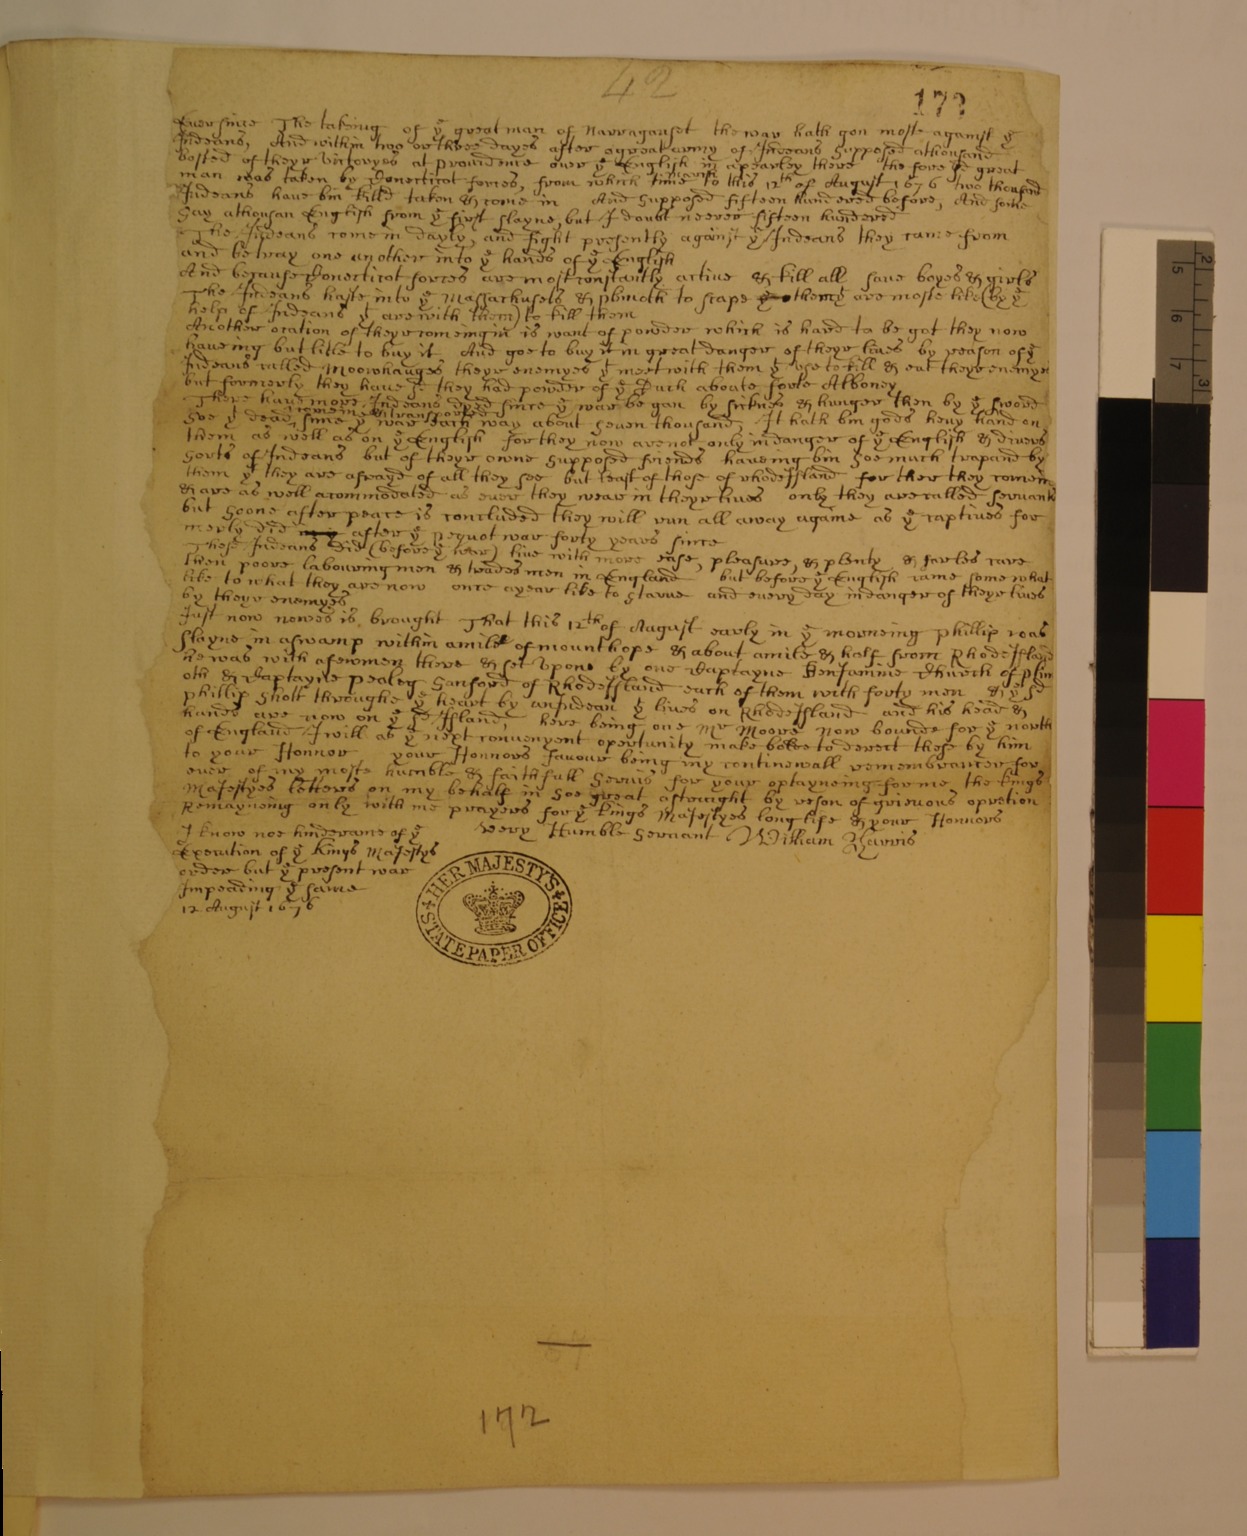 42
172
Ever since The takeing of ye great man of Narraganset the war hath gon moste against ye
Indeans, And within two or three dayes after a great army of Indeans supposed a thousand
bosted of theyr victoryes at providence over ye English in a pearley there the fore sd great
man was taken by Conecticot forces, from which time march to this 12th of August 1676 two thousand
Indeans have bin killd taken & come in And supposed fifteen hundered before, And some
say athousan English from ye first slayne, but I doubt neerer fifteen hundered
The Indeans come in dayly, and fight presently against ye Indeans they came from
and betray one another into ye hands of ye English
And because Conecticot forces are most constantly active & kill all save boyes & girls
The Indeans haste into ye Massachusets & plimoth to scape them yt are moste like (by ye
help of Indeans yt are with them) to kill them
Another ocation of theyr comeing in is want of powder which is hard to be got they now
haveing but litle to buy it And goe to buy it in great danger of theyr lives by reason of ye
Indeans called Moowhauges theyr enemyes yt meet with them yt use to kill & eat theyr enemyes
but formerly they have sd they had powder of ye Duch aboute forte Alboney
There have more Indeans dyed since ye war began by sicknes & hunger then by ye sword
Soe yt dead, come in & transported since ye war each way about seven thousand, It hath bin gods hevy hand on
them as well as on ye English for they now are not only in danger of ye English & divers
sorts of Indeans but of theyr owne supposed friends haveing bin soe much trapand by
them yt they are afrayd of all they see but least of those of RhodeIsland for ther they come in
& are as well acommodated as ever they wear in theyr lives only they are called servants
but soone after peace is concluded they will run all away againe as ye captives for
merly did after ye pequot war forty years since
These Indeans did (before ye war) live with more ease, pleasure, & plenty & far les care
then poore labouring men & trades men in England but before ye English came some what
like to what they are now once a year like to starve and every day in danger of theyr lives
by theyr enemyes
Just now newes is brought That this 12th of August early in ye morneing phillip was
slayne in a swamp within a mile of mounthope & about a mile & half from RhodeIsland
he was with a few men there & set upon by one Captayne Benjamine Church of plim
oth & Captayne pealeg Sanford of RhodeIsland each of them with forty men & ye sd
phillip shott throughe ye heart by an Indean yt lives on RhodeIsland and his head &
hands are now on ye sd Island, here being one Mr Moore now bounde for ye north
of England I will as ye next convenyent opertunity make bolde to derect these by him
to your Honnor your Honnors favour being my continewall remembrancer for
ever of my moste humble & faithfull servis for your optayneing for me the kings
Majestyes letters on my behalf in soe great astraight by reson of grievous opretion
Remayneing only with me prayers for ye kings Majestyes long life & your Honnors
I know noe hinderance of ye very Humble servant William Harris
Execution of ye Kings Majestys
order but ye present war
Impeading ye same
12 August 1676
HER MAJESTY'S
STATE PAPER OFFICE
172